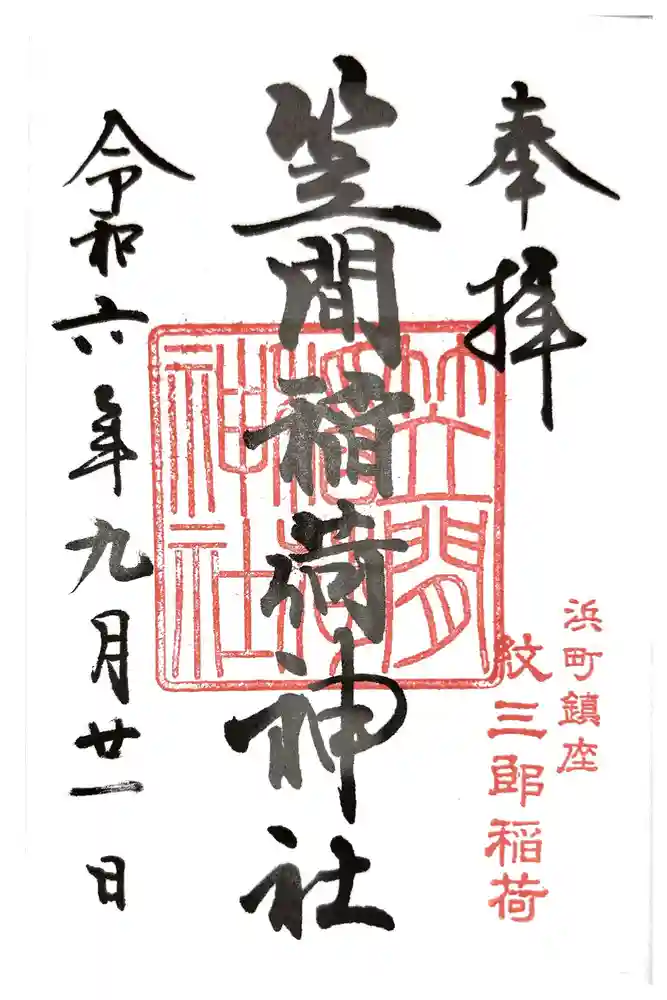 奉拝
浜町鎮座
紋三郎稲荷
笠間稲荷神社
笠間
稲荷
神社
令和六年九月廿一日